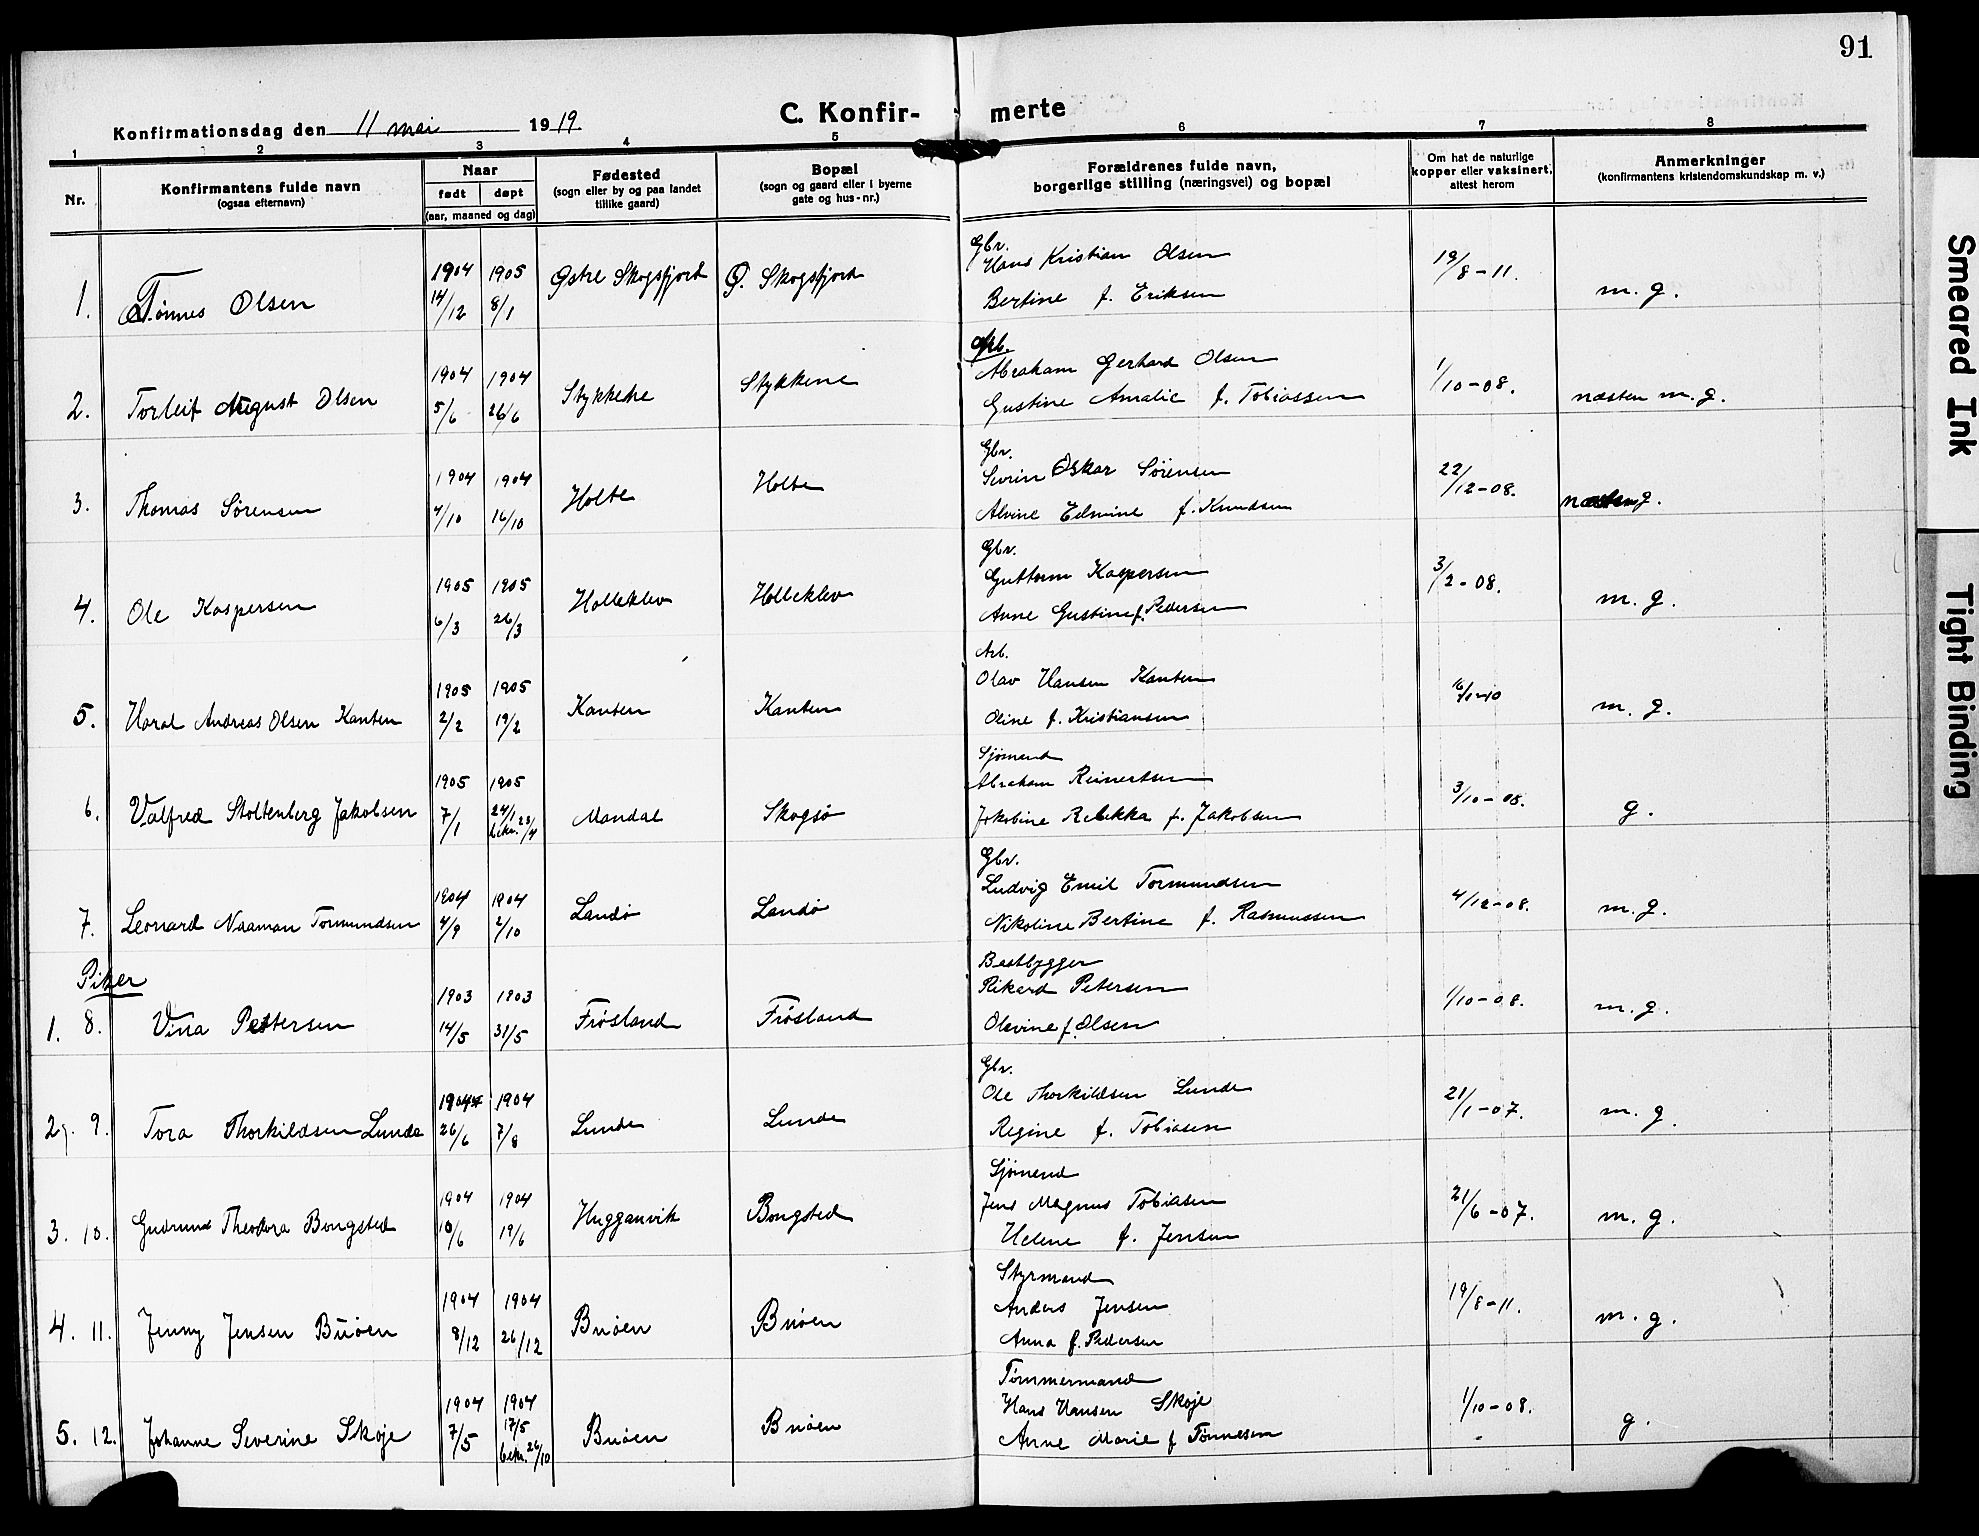 91
Konfirmationsdag den 11 mai 1919.
C. Konfirmerte
1 2 3 4 5 6 7 8
Nr.
Konfirmantens fulde navn
(ogsaa efternavn)
Naar
født døpt
(aar, maaned og dag)
Fødested
(sogn eller by og paa landet
tillike gaard)
Bopæl
(sogn og gaard eller i byerne
gate og hus-nr.)
Forældrenes fulde navn,
borgerlige stilling (næringsvei) og bopæl
Om hat de naturlige
kopper eller vaksinert,
attest herom
Anmerkninger
(konfirmantens kristendomskundskap m. v.)
Gbr.
1904 1905 Østre Skogsfjord Ø. Skogsfjord Hans Kristian Olsen 19/8-11.
1. Tønnes Olsen 14/12 8/1 Bertine f. Eriksen m. g.
Arb.
1904 1904 Stykkene Abraham Gerhard Olsen 1/10-08.
2. Torleif August Olsen 5/6 26/6 Gustine Amalie f. Tobiassen næsten m. g.
Gbr.
1904 1904 Holte Holte Sivrin Oskar Sørensen 22/12-08.
3. Thomas Sørensen 4/10 16/10 Alvine Edmine f. Knudsen næsten g.
Gbr.
1905 1905 Holleklev Holleklev Guttorm Kaspersen 3/2-08.
4. Ole Kaspersen 6/3 26/3 Anne Gustine f. Pedersen m. g.
Arb.
1905 1905 Kanten Kanten Olav Hansen Kanten 16/1-10
5. Haral Andreas Olsen Kanten 2/2 19/2 Oline f. Kristiansen m. g.
Sjømand
1905 1905 Abraham Reinertsen 3/10-08.
6. Valfred Stoltenberg Jakobsen 7/1 24/1 Mandal Skogsø Jakobine Rebekka f. Jakobsen g.
bekr. 23/4
Gbr.
1904 1904 Landø Landø Ludvig Emil Tormundsen 4/12-08.
7. Leonard Naaman Tormundsen 4/9 2/10 Nikoline Bertine f. Rasmussen m. g.
Piker
Baatbygger
1903 1903 Frøsland Frøsland Rikard Petersen 1/10-08.
1. 8. Vina Pettersen 14/5 31/5 Olevine f. Olsen m. g.
Gbr.
1904 1904 Lunde Lunde Ole Thorkildsen Lunde 21/1-07.
2. 9. Tora Thorkildsen Lunde 26/6 7/8 Regine f. Tobiasen m. g.
Sjømand
1904 1904 Hugganvik Bongsted Jens Magnus Tobiasen 21/6-07.
3. 10. Gudrund Theodora Bongsted 10/6 19/6 Helene f. Jensen m. g.
Styrmand
1904 1904 Buøen Buøen Anders Jensen 19/8-11.
4. 11. Jenny Jensen Buøen 8/12 26/12 Anna f. Pedersen m. g.
Tømmermand
1904 1904 Hans Hansen Skøje 1/10-08.
5. 12. Johanne Severine Skøje 7/5 17/5 Buøen Buøen Anne Marie f Tønnesen g.
bekr. 26/10
Smeared Ink
Tight Binding